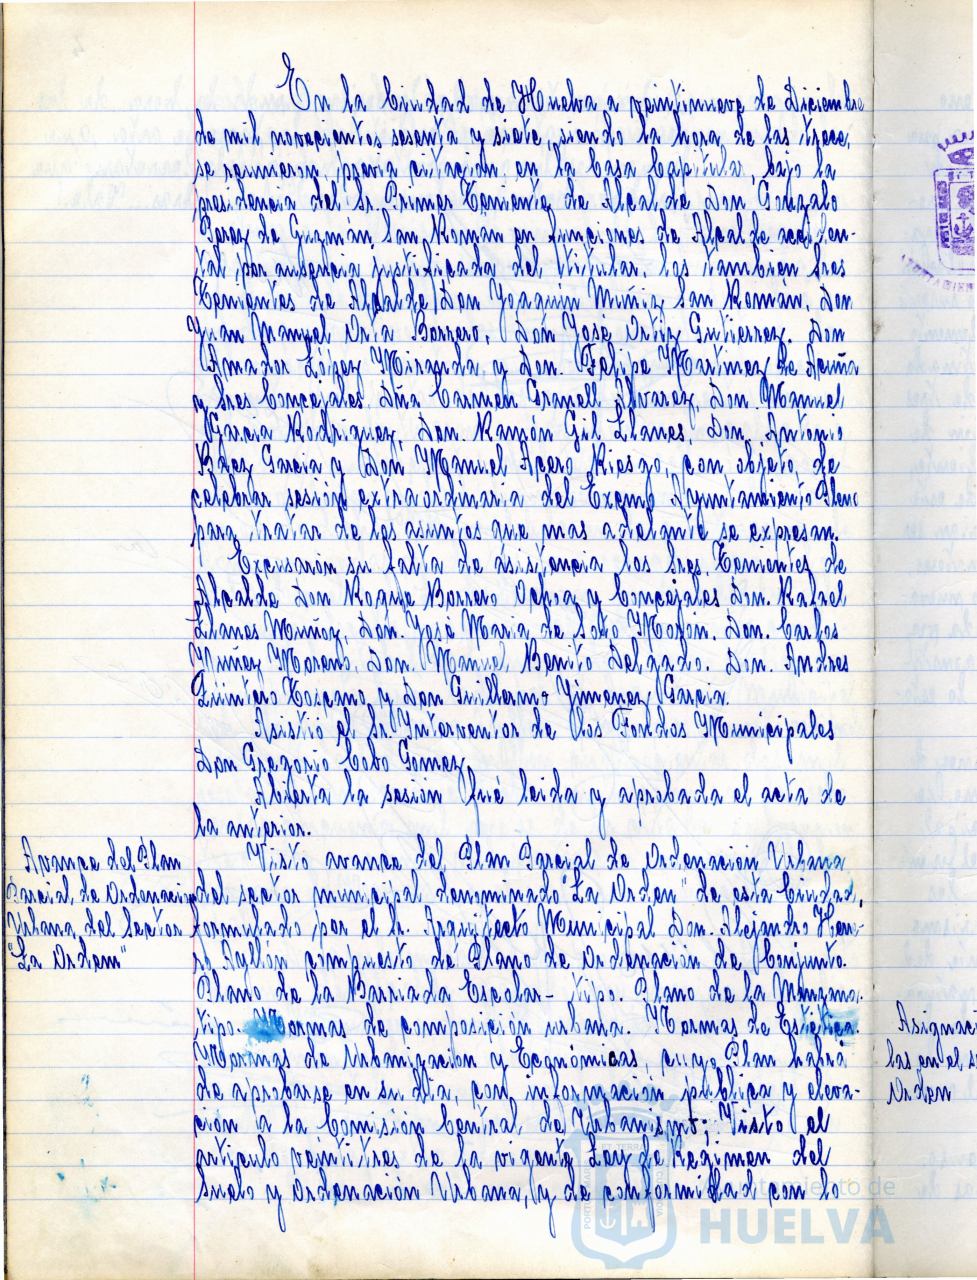 En la Ciudad de Huelva a veintinueve de Diciembre
de mil novecientos sesenta y siete, siendo la hora de las trece,
se reunieron, previa citación, en la Casa Capitular, bajo la
presidencia del Sr. Primer Teniente de Alcalde Don Gonzalo
Perez de Guzmán San Román en funciones de Alcalde acciden-
tal, por ausencia justificada del titular, los tambien Sres
Tenientes de Alcalde Don Joaquín Muñiz San Román, Don
Juan Manuel Orta Borrero, Don José Ortiz Gutierrez. Don
Amador López Miranda y Don. Felipe Martinez de Acuña
y Sres Concejales, Dña Carmen Granell Alvarez, Don. Manuel
Garcia Rodriguez, Don. Ramón Gil Llanes, Don. Antonio
Baez Garcia y Don Manuel Acero Riesgo, con objeto de
celebrar sesión extraordinaria del Excmo Ayuntamiento Pleno
para tratar de los asuntos que mas adelante se expresan.
Excusarón su falta de asistencia los Sres. Tenientes de
Alcalde Don Roque Barrero Ochoa y Concejales Don. Rafael
Llanes Muñoz, Don. José Maria de Soto Morón. Don. Carlos
Nuñez Moreno, Don. Manuel Benito Delgado. Don. Andres
Quintero Toscano y Don Guillermo Jimenez Garcia.
Asistió el Sr. Interventor de los Fondos Municipales
Don Gregorio Cobo Gomez.
Abierta la sesión fué leida y aprobada el acta de
la anterior.
Avance del Plan
Parcial de Ordenación
Urbana del Sector
"La Orden"
Visto avance del Plan Parcial de Ordenación Urbana
del sector municipal denominado "La Orden" de esta Ciudad,
formulado por el Sr. Arquitecto Municipal Don. Alejandro Herre-
ro Ayllón compuesto de Plano de Ordenación de Conjunto.
Plano de la Barriada Escolar-tipo. Plano de la Manzana
tipo. Normas de composición urbana. Normas de Estética.
Normas de Urbanización y Económicas, cuyo Plan habrá
de aprobarse en su dia, con información publica y eleva-
ción a la Comisión Central de Urbanismo; Visto el
articulo veintitres de la vigente Ley de Regimen del
Suelo y Ordenación Urbana, y de conformidad con lo
Asignaci
las en el s
Orden
Ayuntamiento de
HUELVA